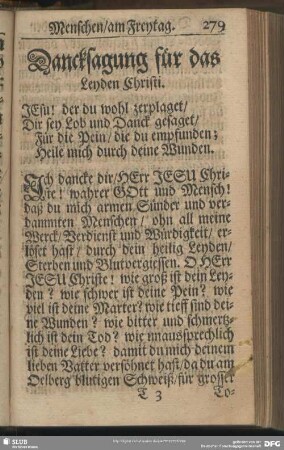 Menschen/am Freytag. 279
Dancksagung für das
Leyden Christi.
JEsu! der du wohl zerplaget/
Dir sey Lob und Danck gesaget/
Für die Pein/ die du empfunden;
Heile mich durch deine Wunden.
Ich dancke dir/ HErr JESU Chri-
ste! wahrer GOtt und Mensch!
daß du mich armen Sünder und ver-
dammten Menschen/ ohn all meine
Werck/ Verdienst und Würdigkeit/ er-
löset hast/ durch dein heilig Leyden/
Sterben und Blutvergiessen. O HErr
JESU Christe! wie groß ist dein Ley-
den? wie schwer ist deine Pein? wie
viel ist deine Marter? wie tieff sind dei-
ne Wunden? wie bitter und schmertz-
lich ist dein Tod? wie unaussprechlich
ist deine Liebe? damit du mich deinem
lieben Vatter versöhnet hast/ da du am
Oelberg blutigen Schweiß/ für grosser
T 3 To-
SLUB
DFG